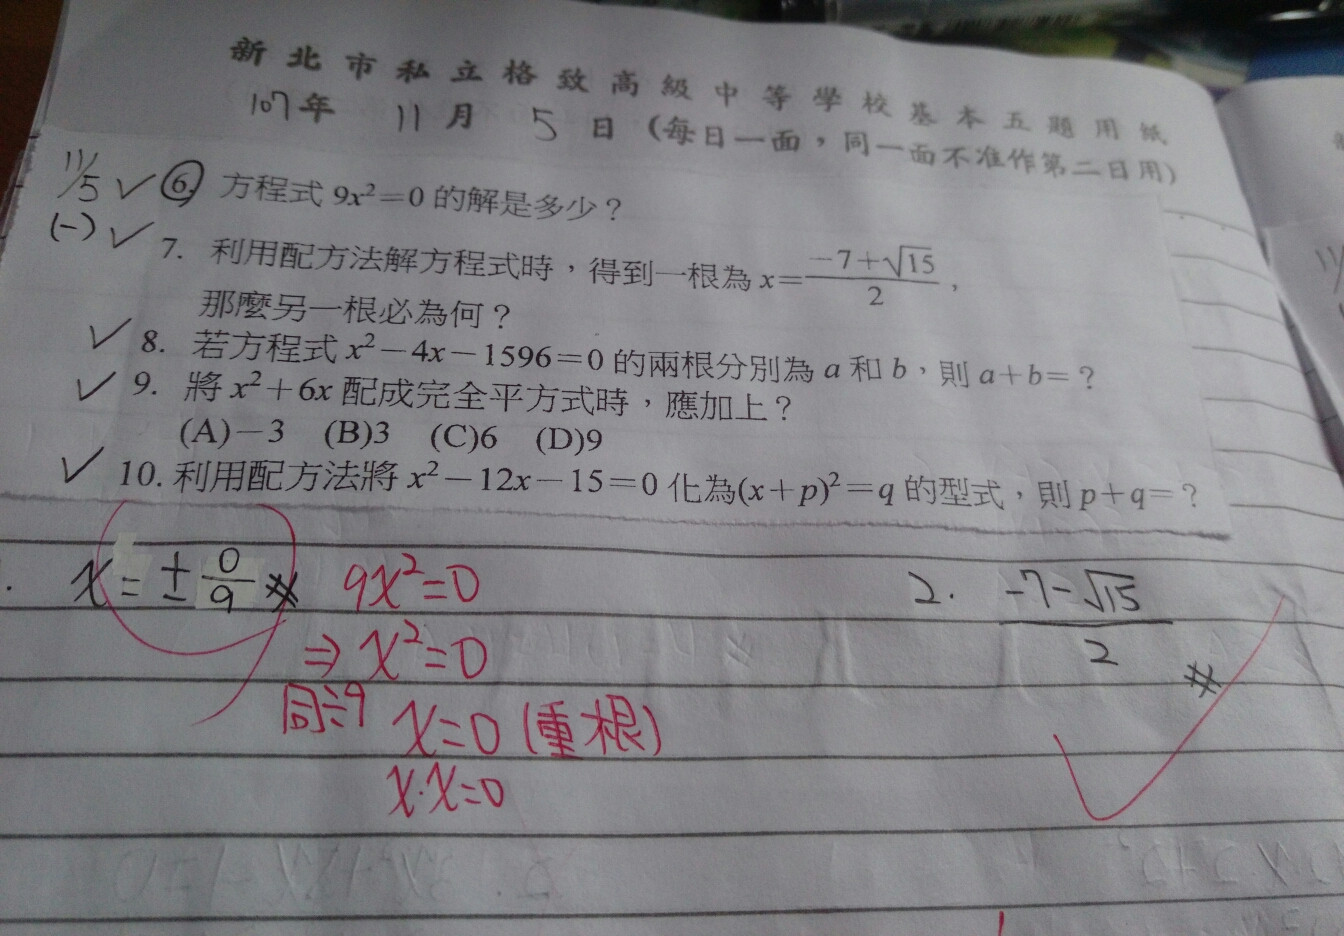 新北市私立格致高級中等學校基本五題用紙
107年 11月 5日(每日一面,同一面不准作第二日用)
11/5 ✓ ⑥ 方程式 9x²=0 的解是多少?
(一) ✓ 7. 利用配方法解方程式時,得到一根為 x=(-7+√15)/2,
那麼另一根必為何?
✓ 8. 若方程式 x²-4x-1596=0 的兩根分別為 a 和 b,則 a+b=?
✓ 9. 將 x²+6x 配成完全平方式時,應加上?
(A)-3 (B)3 (C)6 (D)9
✓ 10. 利用配方法將 x²-12x-15=0 化為(x+p)²=q 的型式,則 p+q=?
x=±0/9 #
9x²=0
⇒ x²=0
同÷9 x=0 (重根)
x·x=0
2. (-7-√15)/2 #